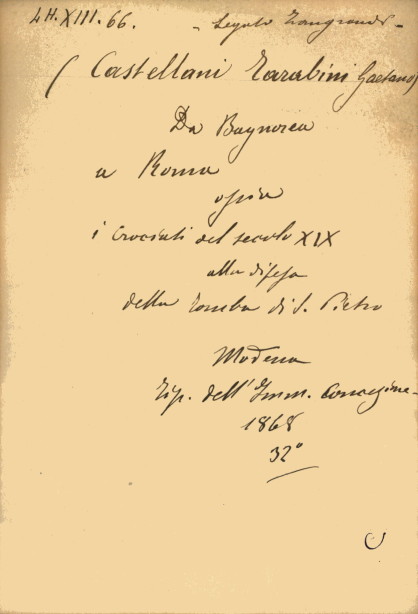 4H.XIII.66. - Legato Zangrandi -
(Castellani Tarabini Gaetano)
Da Bagnorea
a Roma
ossia
i crociati del secolo XIX
alla difesa
della tomba di S. Pietro
Modena
Tip. dell'Imm. Concezione
1868
32°